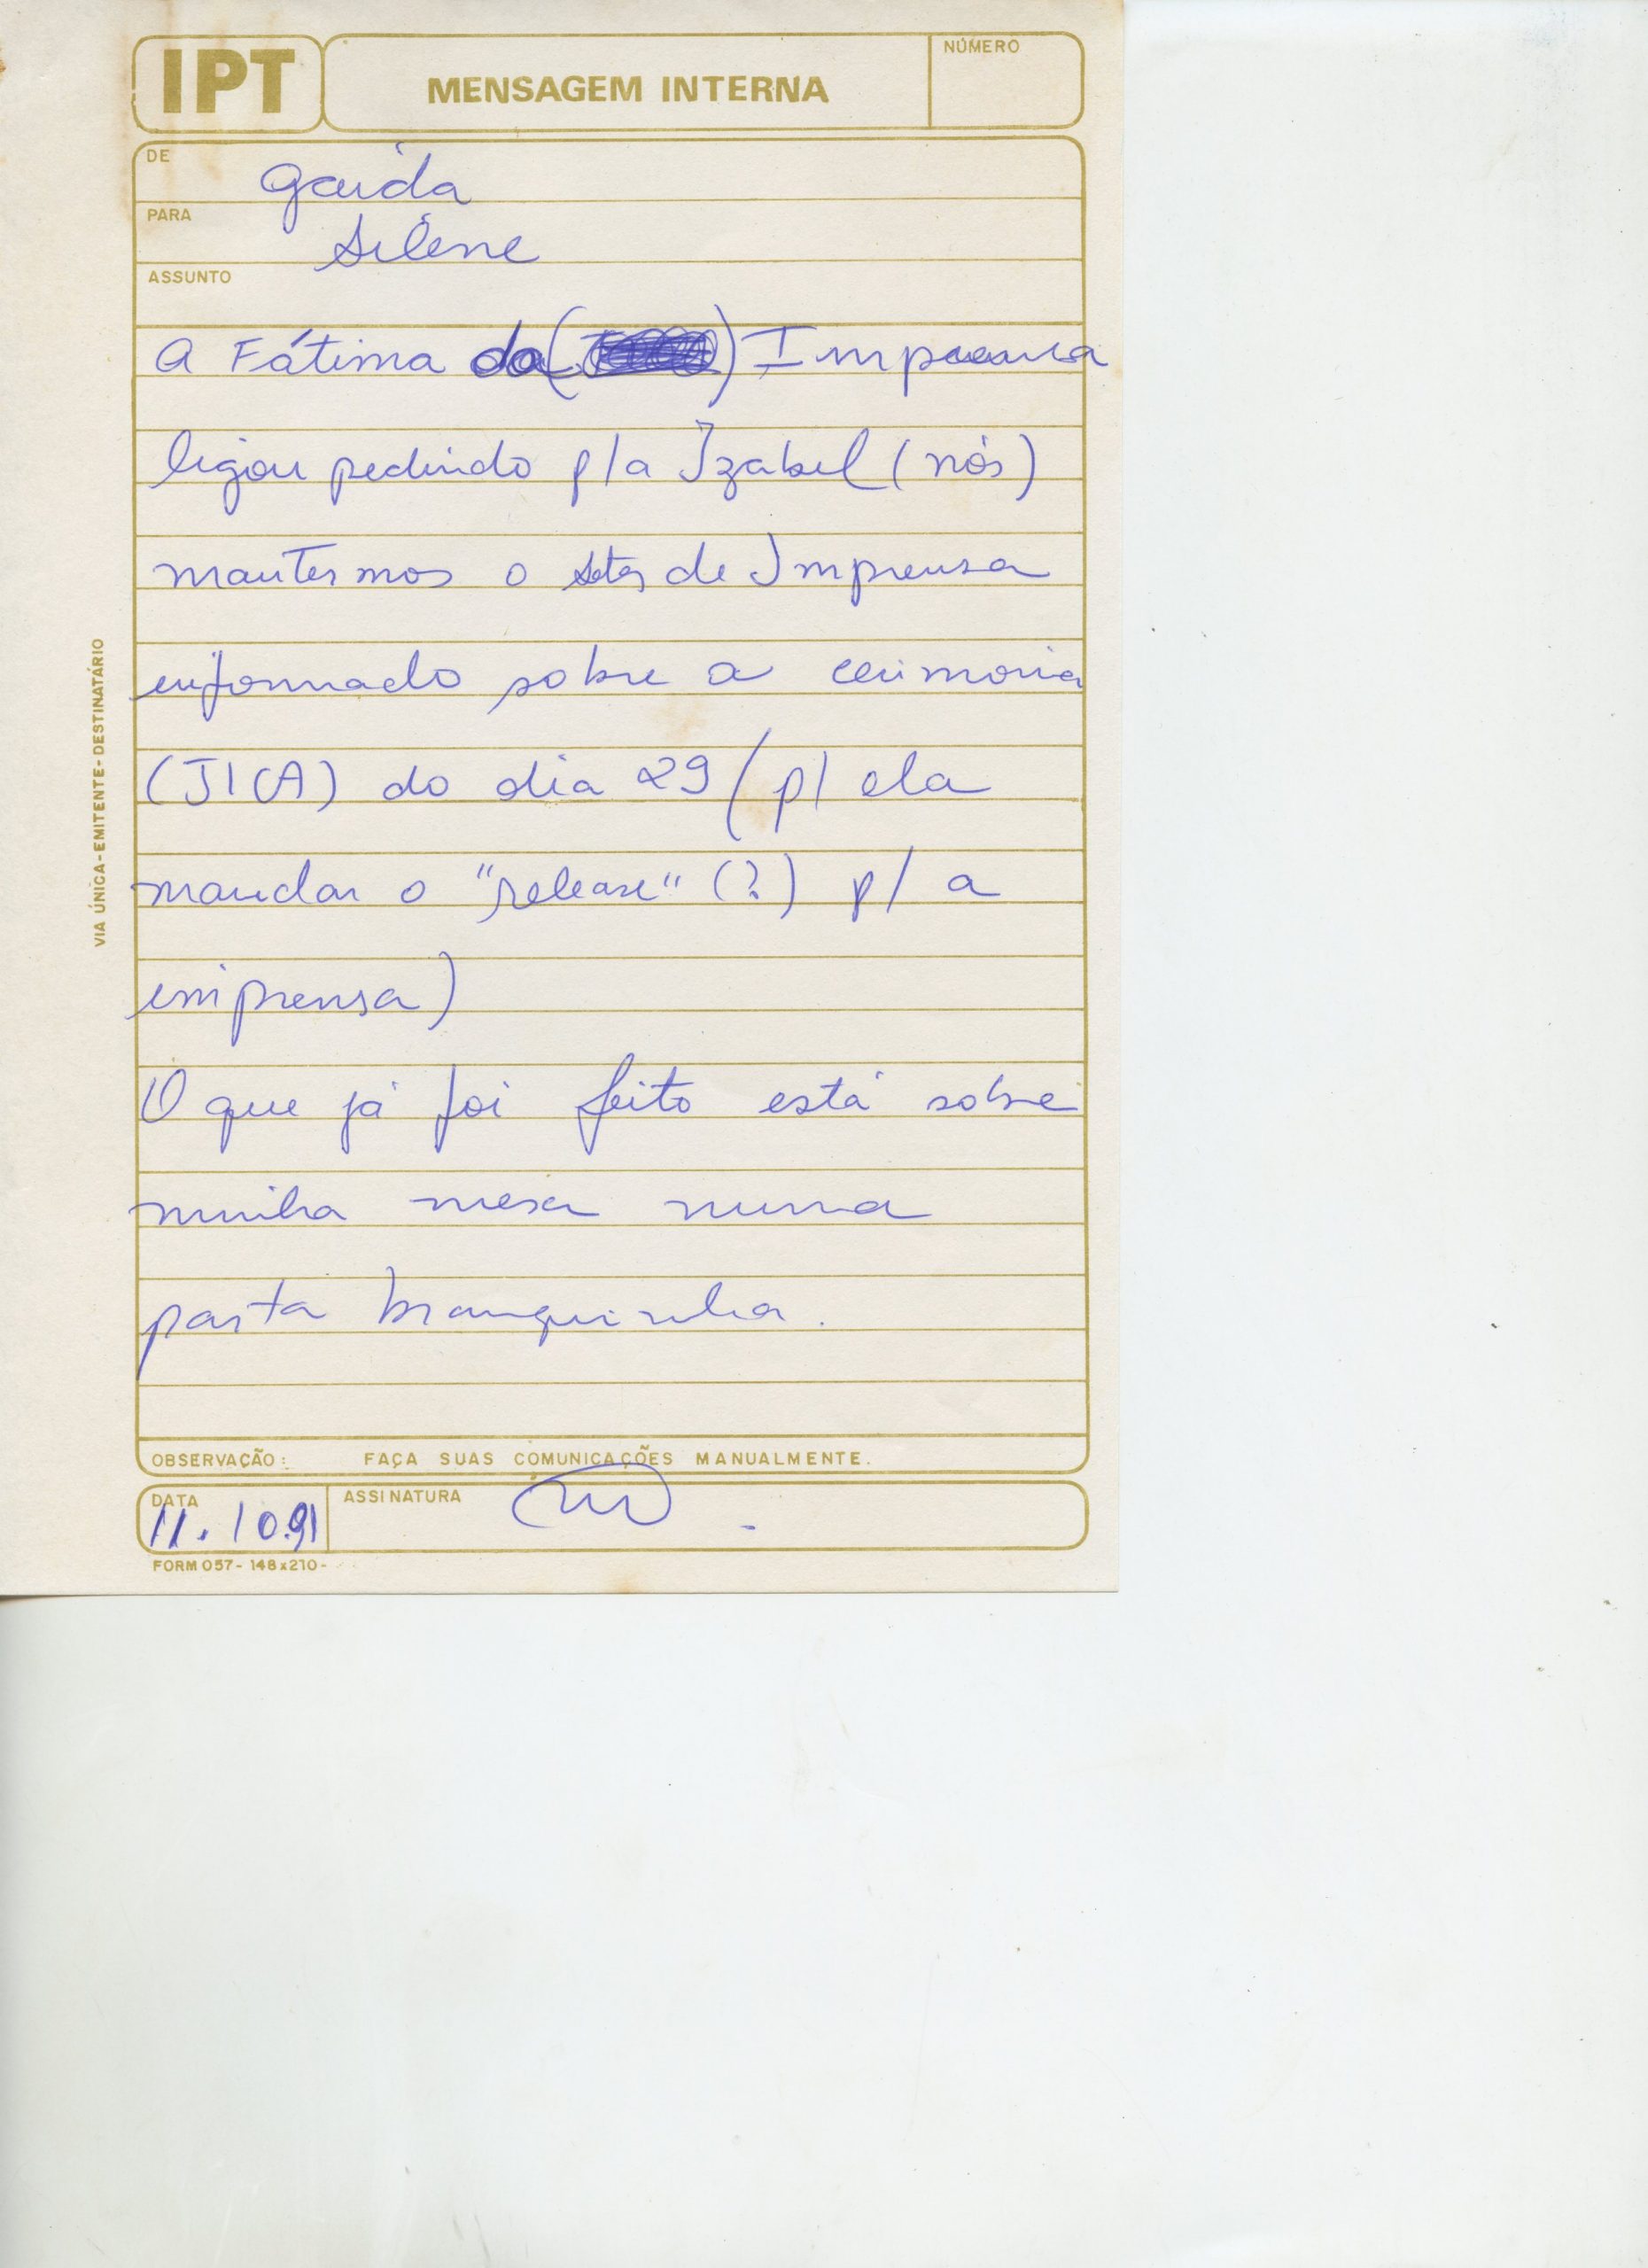 IPT
MENSAGEM INTERNA
NÚMERO
DE
PARA
Silene
ASSUNTO
A Fátima da ( ) Imprensa
ligou pedindo p/a Izabel (nós)
mantermos o setor de Imprensa
informado sobre a cerimonia
(JICA) do dia 29 (p/ ela
mandar o "release" (?) p/ a
imprensa)
O que já foi feito está sobre
minha mesa numa
pasta branquinha.
OBSERVAÇÃO: FAÇA SUAS COMUNICAÇÕES MANUALMENTE.
DATA
11.10.91
ASSINATURA
FORM 057 - 148x210 -
VIA ÚNICA - EMITENTE - DESTINATÁRIO